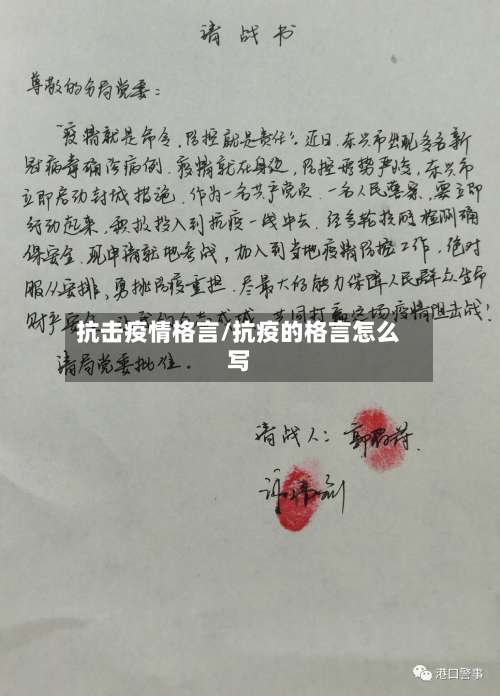 请战书
尊敬的分局党委：
"疫情就是命令，防控就是责任"。近日，东兴市出现多名新
冠病毒确诊病例，疫情就在身边，防控形势严峻，东兴市
立即启动封城措施。作为一名共产党员，一名人民警察，要立即
行动起来，积极投入到抗疫一线中去。经多轮核酸检测确
保安全，现申请就地参战，加入到当地疫情防控工作，绝对
服从安排，勇挑防疫重担，尽最大的能力保障人民群众生命
财产安全，共同打赢这场疫情阻击战！
抗击疫情格言/抗疫的格言怎么
写
请局党委批准。
请战人：
港口警事